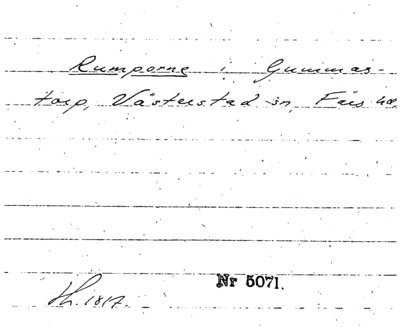 Rumporne i Gummas-
torp, Västerstad sn, Färs hd.
Nr 5071.
Th. 1817.